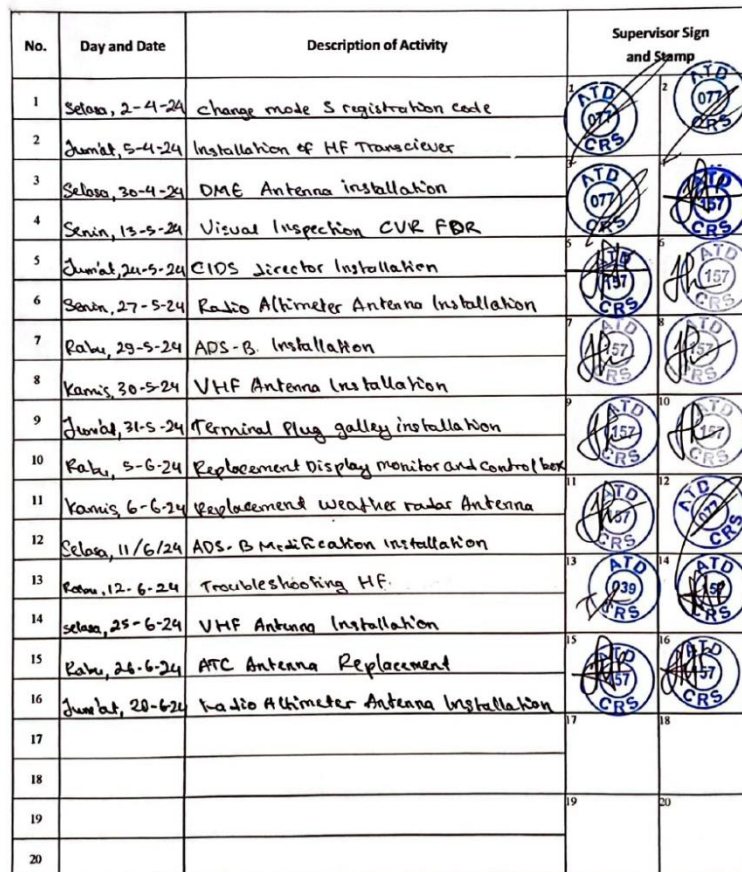 No. Day and Date Description of Activity Supervisor Sign and Stamp
1 Selasa, 2-4-24 Change mode S registration code
2 Jum'at, 5-4-24 Installation of HF Transciever
3 Selasa, 30-4-24 DME Antenna installation
4 Senin, 13-5-24 Visual Inspection CVR FDR
5 Jum'at, 24-5-24 CIDS Director Installation
6 Senin, 27-5-24 Radio Altimeter Antenna Installation
7 Rabu, 29-5-24 ADS-B. Installation
8 Kamis, 30-5-24 VHF Antenna Installation
9 Jum'at, 31-5-24 Terminal Plug galley installation
10 Rabu, 5-6-24 Replacement Display monitor and control box
11 Kamis, 6-6-24 Replacement weather radar Antenna
12 Selasa, 11/6/24 ADS-B Modification Installation
13 Rabu, 12-6-24 Troubleshooting HF.
14 Selasa, 25-6-24 VHF Antenna Installation
15 Rabu, 26-6-24 ATC Antenna Replacement
16 Jum'at, 28-6-24 Radio Altimeter Antenna Installation
17
18
19
20
1 ATD 077 CRS
2 ATD 077 CRS
ATD 077 CRS
ATD 157 CRS
5 ATD 157 CRS
6 ATD 157 CRS
7 ATD 157 CRS
8 ATD 157 CRS
9 ATD 157 CRS
10 ATD 157 CRS
11 ATD 157 CRS
12 ATD 077 CRS
13 ATD 039 CRS
14 ATD 157 CRS
15 ATD 157 CRS
16 ATD 157 CRS
17
18
19
20